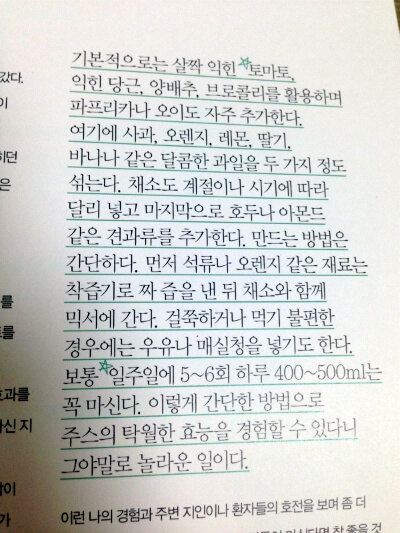 기본적으로는 살짝 익힌 ☆토마토,
익힌 당근, 양배추, 브로콜리를 활용하며
파프리카나 오이도 자주 추가한다.
여기에 사과, 오렌지, 레몬, 딸기,
바나나 같은 달콤한 과일을 두 가지 정도
섞는다. 채소도 계절이나 시기에 따라
달리 넣고 마지막으로 호두나 아몬드
같은 견과류를 추가한다. 만드는 방법은
간단하다. 먼저 석류나 오렌지 같은 재료는
착즙기로 짜 즙을 낸 뒤 채소와 함께
믹서에 간다. 걸쭉하거나 먹기 불편한
경우에는 우유나 매실청을 넣기도 한다.
보통 ☆일주일에 5~6회 하루 400~500ml는
꼭 마신다. 이렇게 간단한 방법으로
주스의 탁월한 효능을 경험할 수 있다니
그야말로 놀라운 일이다.
이런 나의 경험과 주변 지인이나 환자들의 호전을 보며 좀 더
갔다.
이
히던
은
를
를
효과를
하신 지
이
가